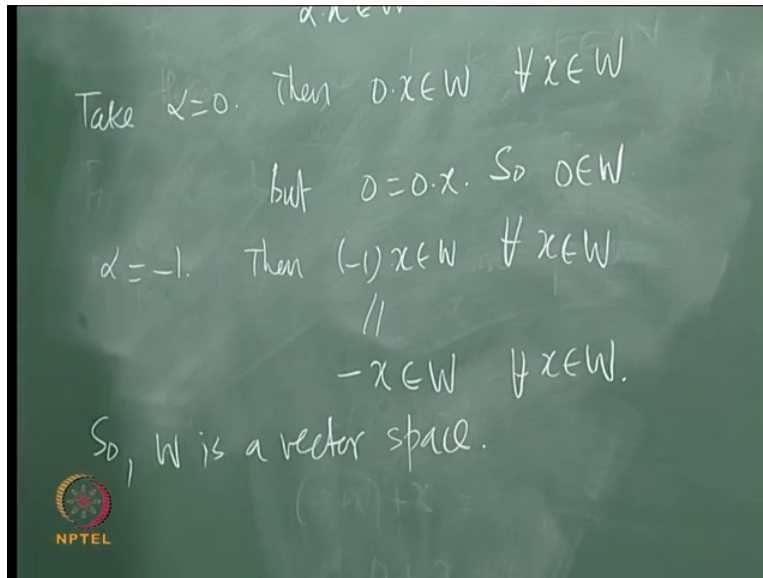 α.x∈W
Take α=0. Then 0.x∈W ∀x∈W
but 0=0.x. So 0∈W.
α=-1. Then (-1)x∈W ∀x∈W
//
-x∈W ∀x∈W.
So, W is a vector space.
NPTEL